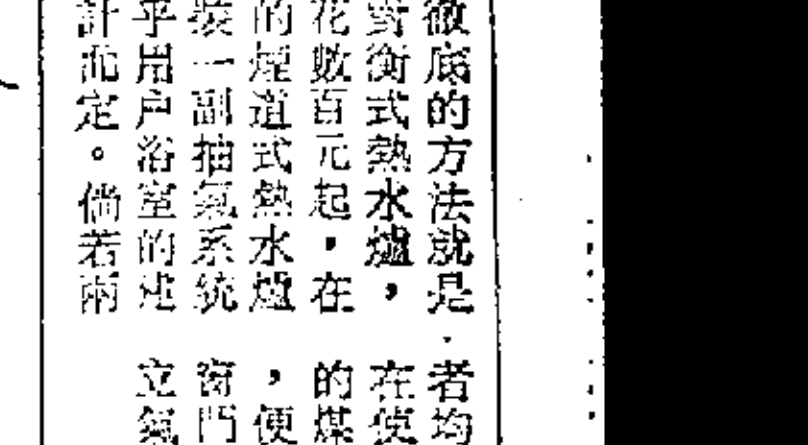 徹底的方法就是
對衡式熱水爐，
花數百元起，在
的煙道式熱水爐
裝一副抽氣系統
乎用户浴室的
計而定。倘若兩
者均
在使
的煤
，便
窗門
立氣